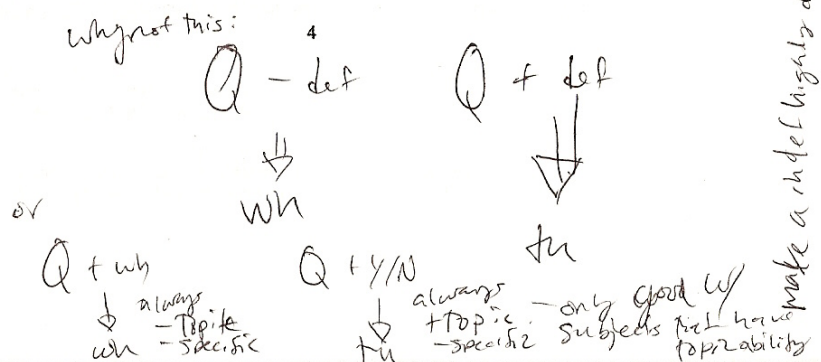 why not this:
4
Q - def
Q + def
⇓
⇓
wh
tu
or
Q + wh
↓
always
- Topic
- Specific
wh
Q + Y/N
↓
always
+ Topic
- specific
tu
- only good w/
subjects that have
topicability
make a indef highly